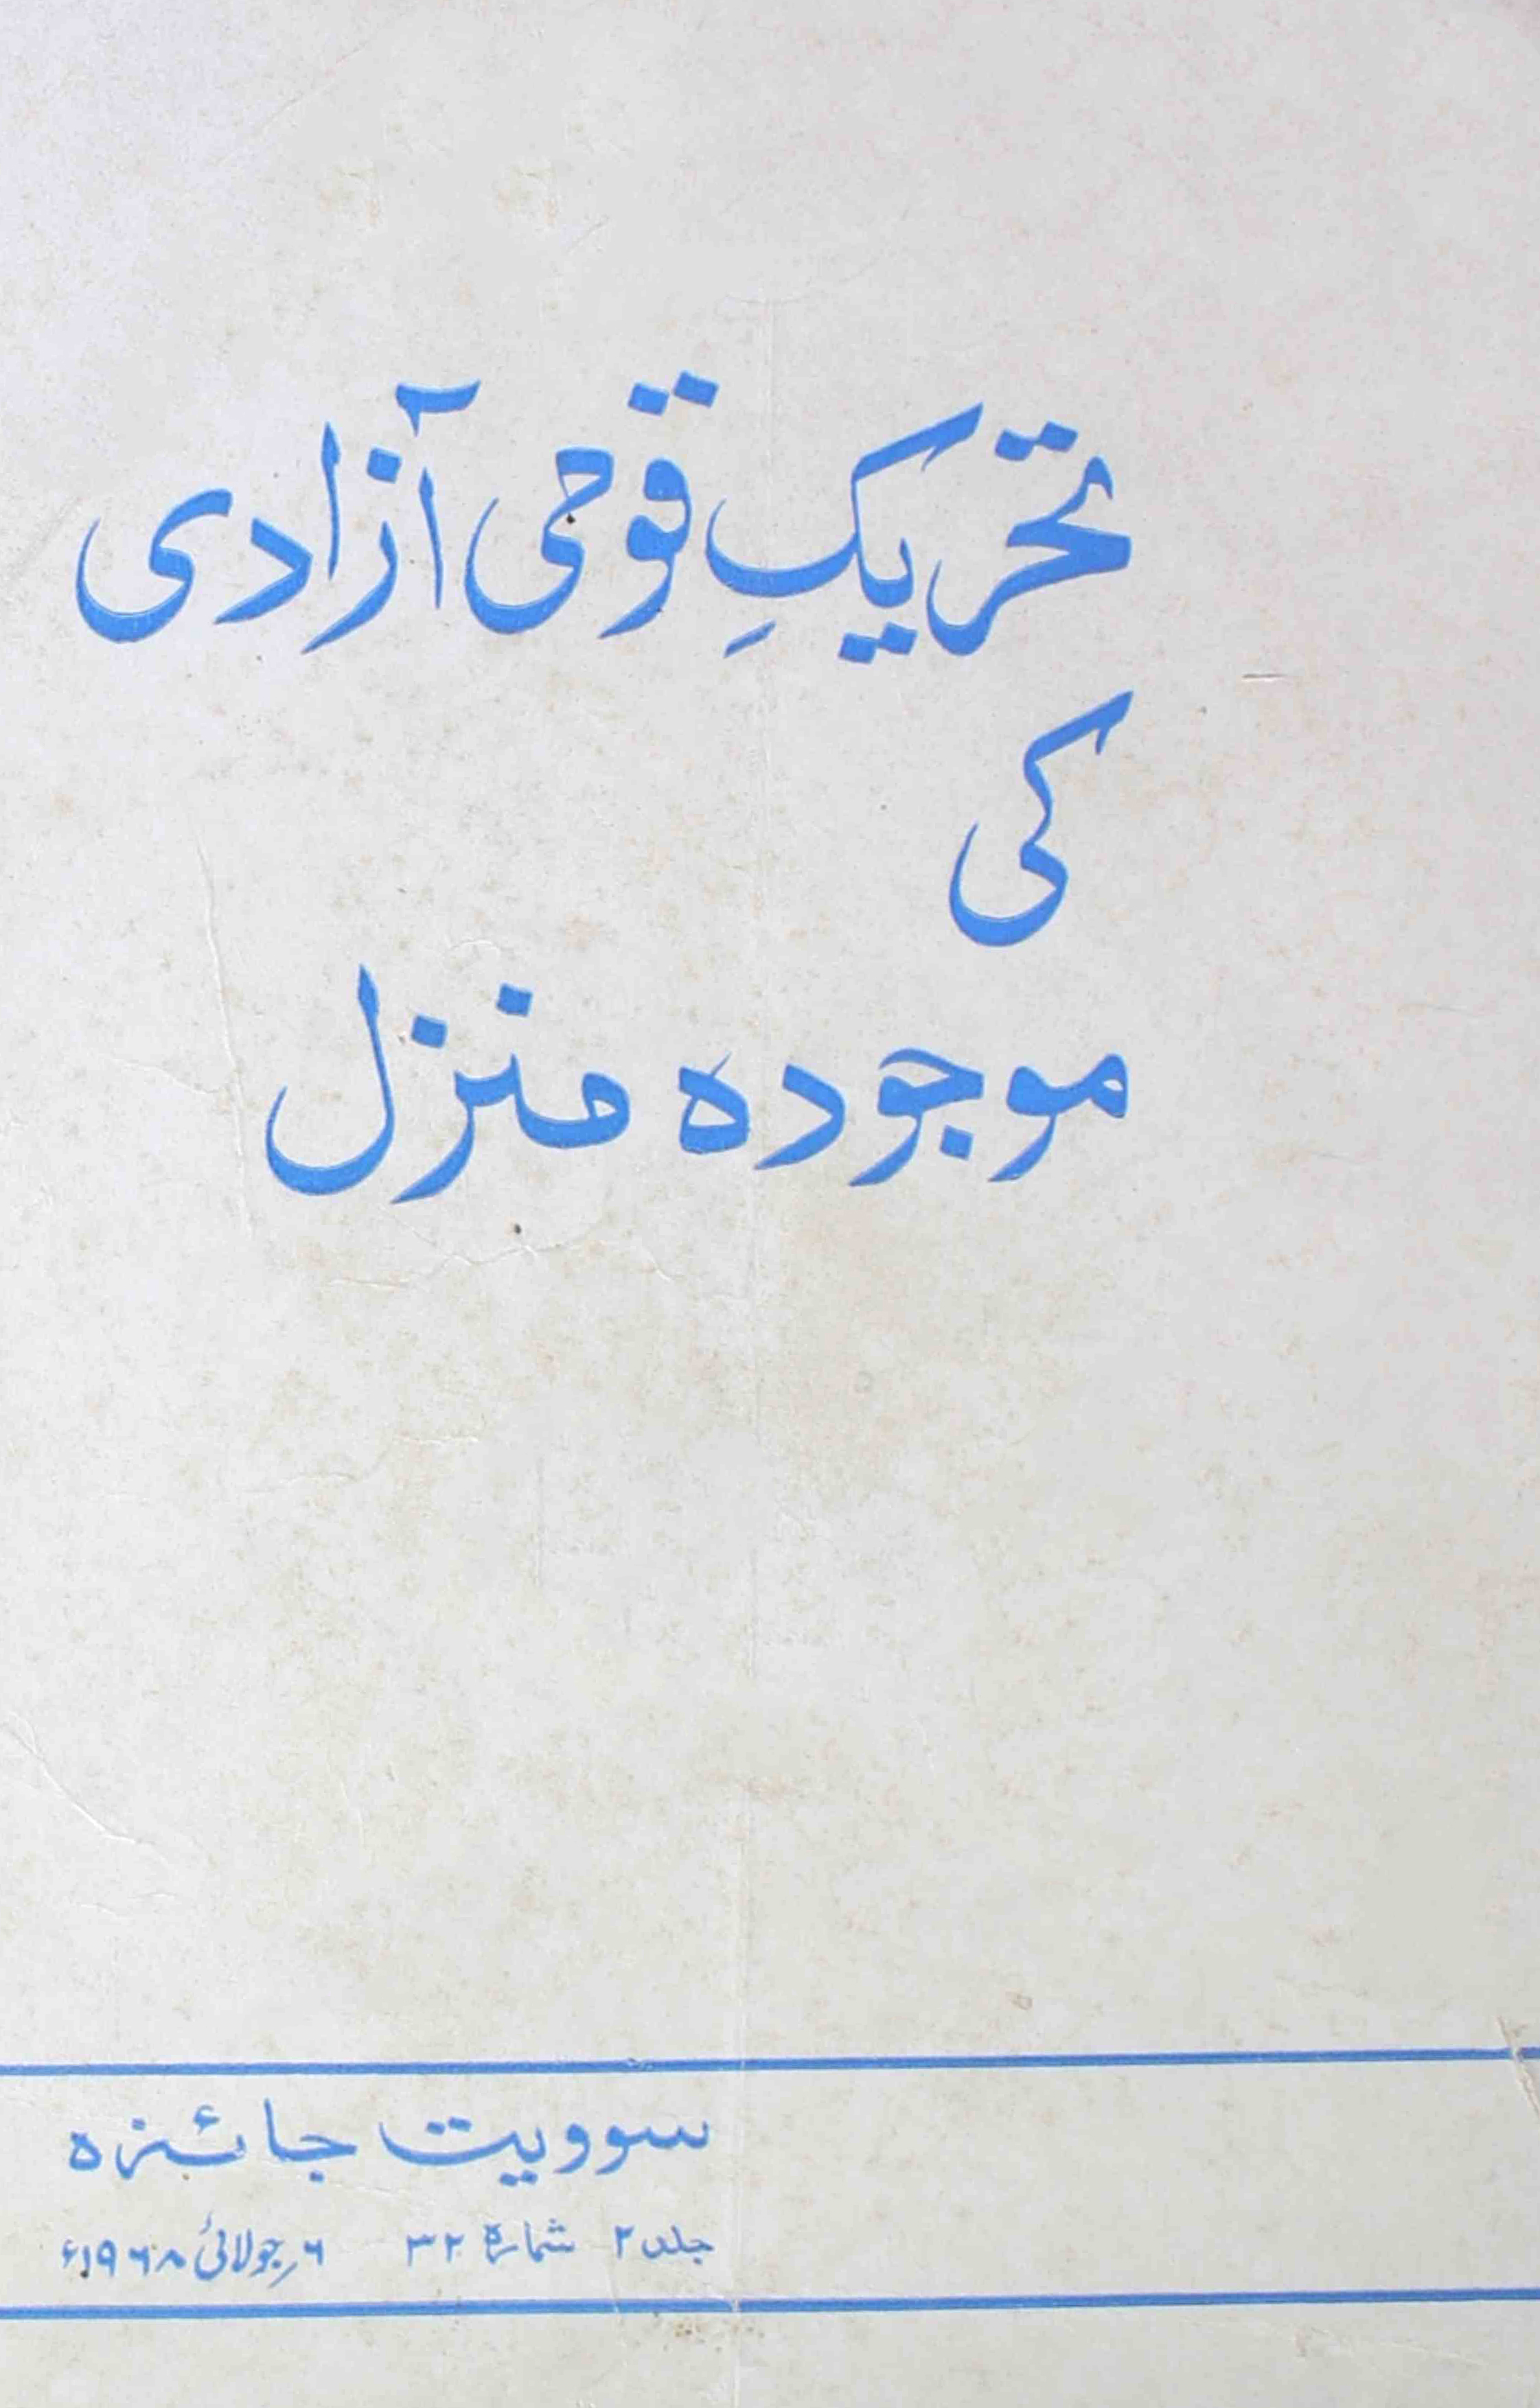 تحریکِ قومی آزادی
کی
موجودہ منزل
سوویت جائزہ
جلد ۲ شمارہ ۳۲ ۶؍جولائی ۱۹۶۸ء